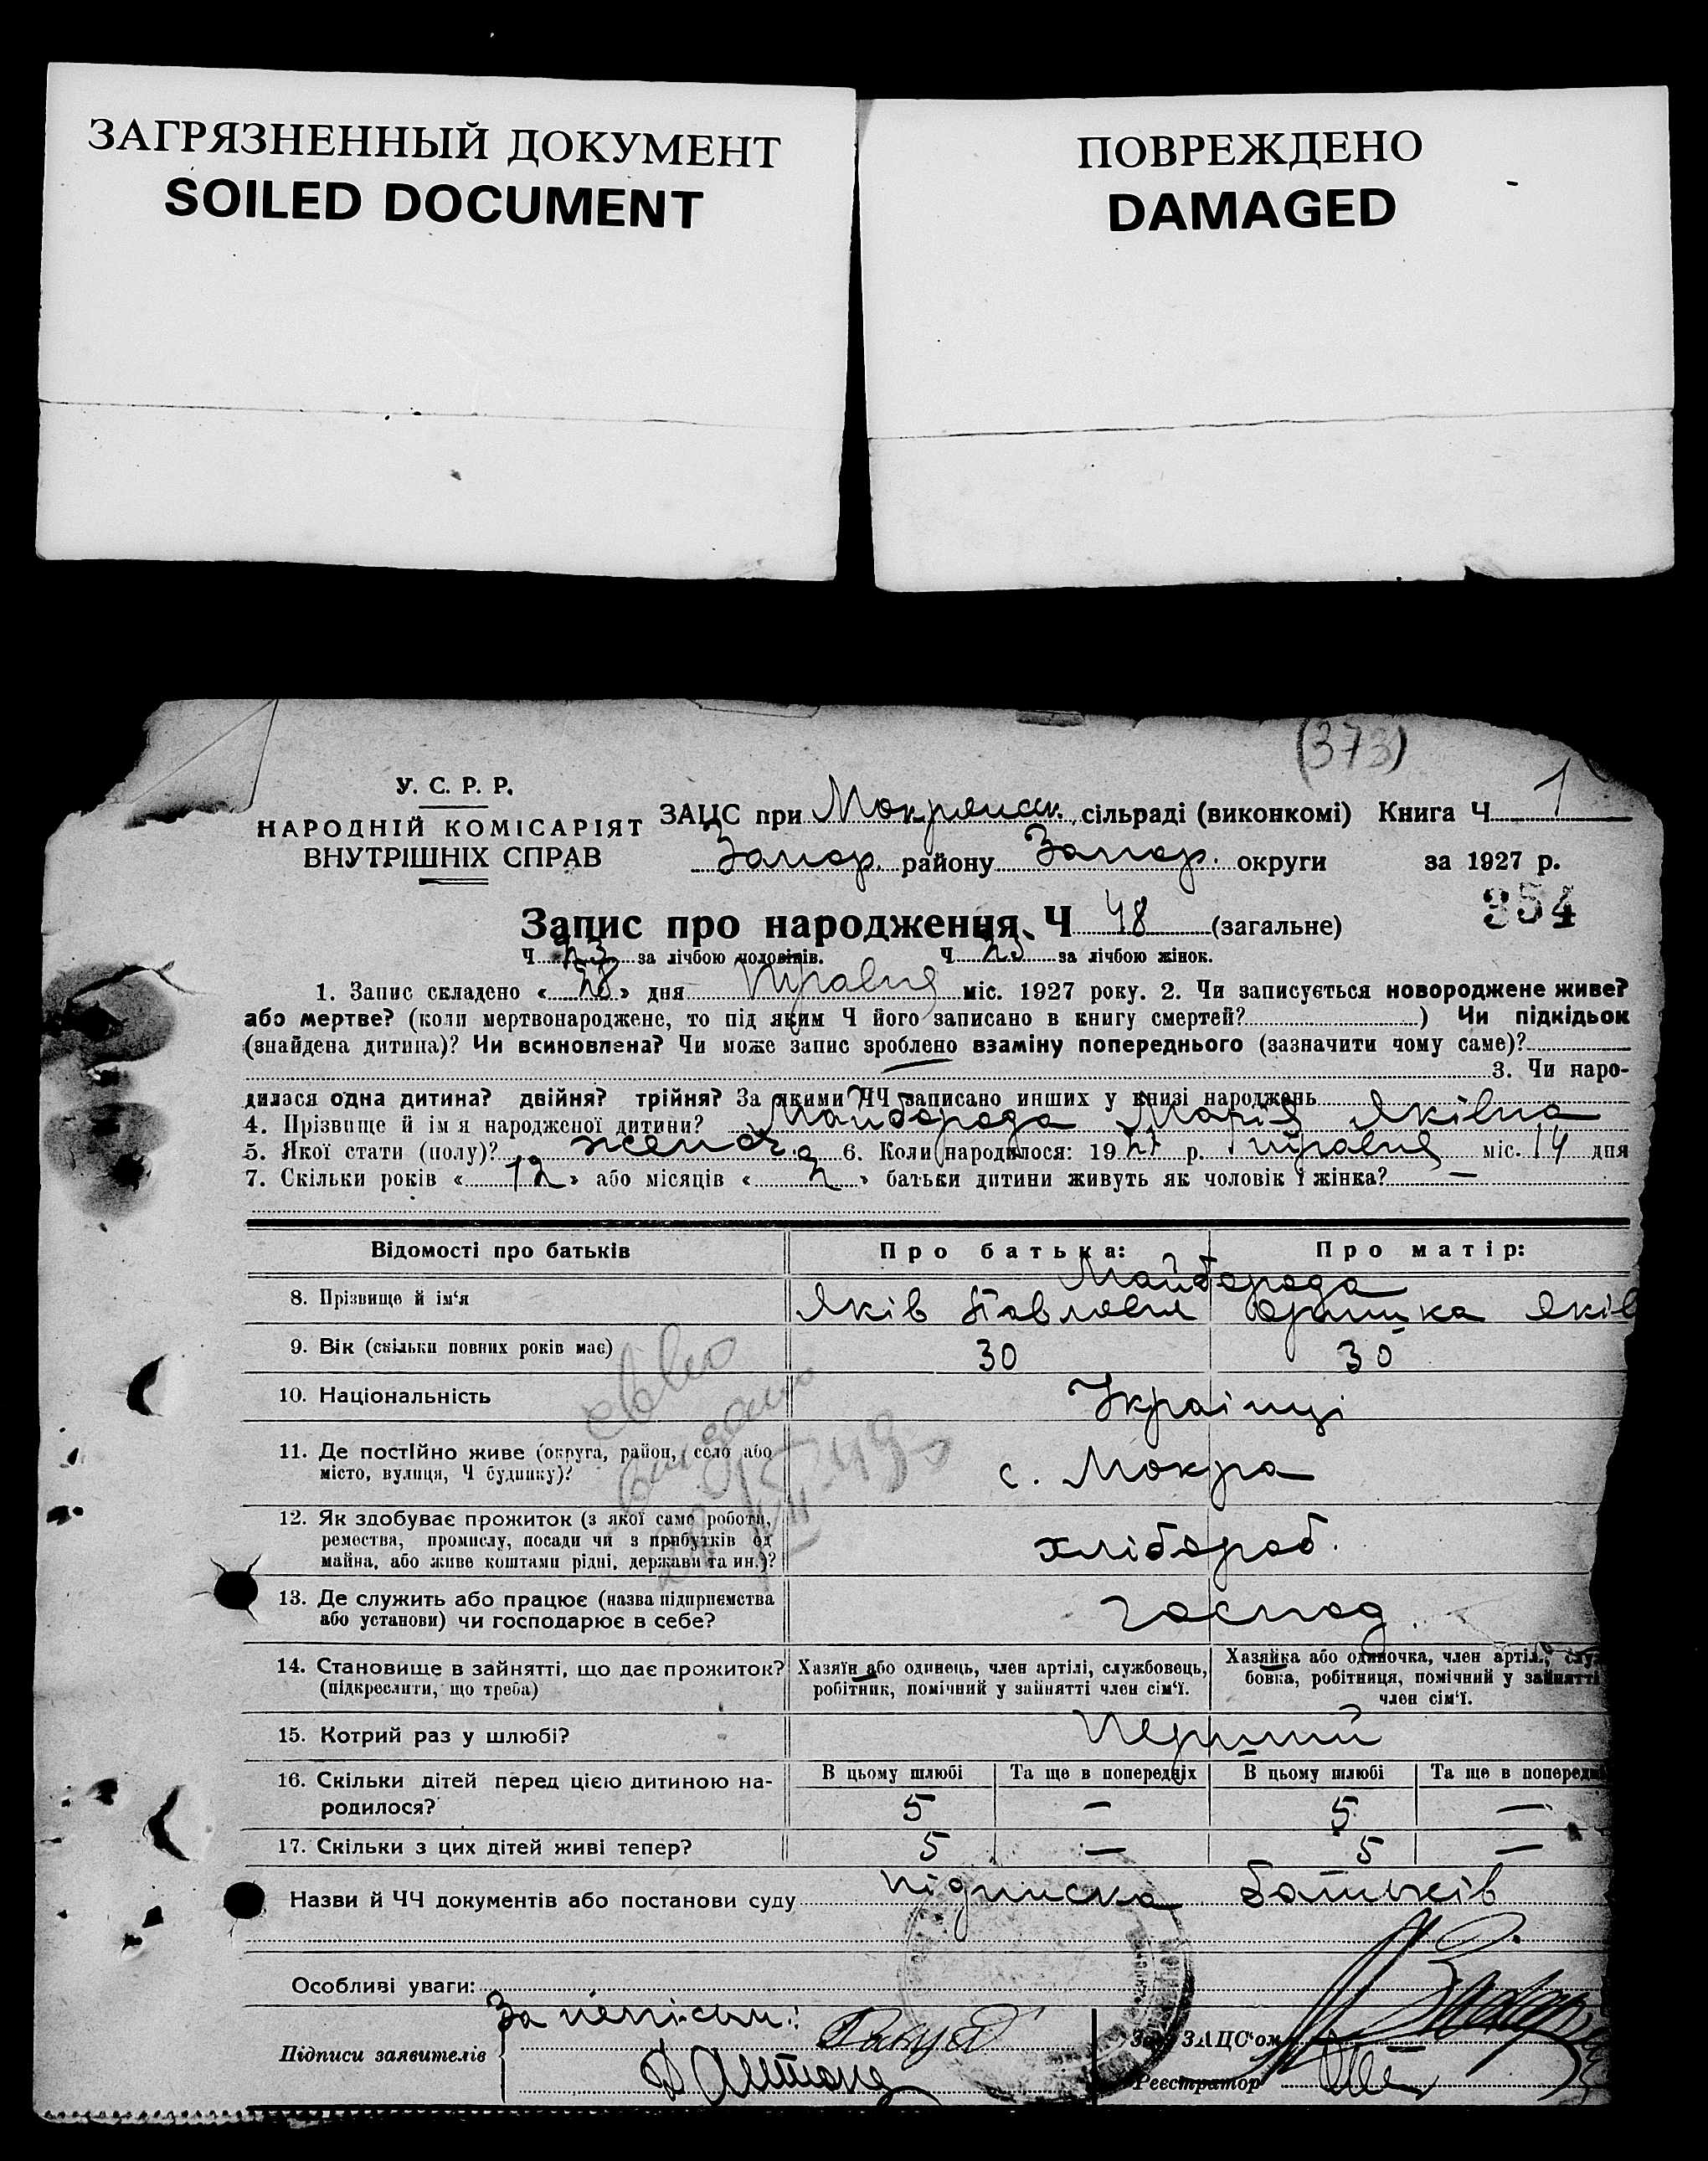 ЗАГРЯЗНЕННЫЙ ДОКУМЕНТ
SOILED DOCUMENT
ПОВРЕЖДЕНО
DAMAGED
(373)
У. С. Р. Р.
НАРОДНІЙ КОМІСАРІЯТ
ВНУТРІШНІХ СПРАВ
ЗАЦС при Мокрянськ. сільраді (виконкомі) Книга Ч 1
Запор. району Запор. округи за 1927 р.
354
Запис про народження Ч 48 (загальне)
Ч 23 за лічбою чоловіків. Ч 25 за лічбою жінок.
1. Запис складено « 28 » дня Травня міс. 1927 року. 2. Чи записується новороджене живе?
або мертве? (коли мертвонароджене, то під яким Ч його записано в книгу смертей? ) Чи підкідьок
(знайдена дитина)? Чи всиновлена? Чи може запис зроблено взаміну попереднього (зазначити чому саме)?
3. Чи наро-
дилася одна дитина? двійня? трійня? За якими ЧЧ записано инших у книзі народжень
4. Прізвище й ім'я народженої дитини? Майборода Марія Яківна
5. Якої стати (полу)? жіноч. 6. Коли народилося: 1927 р. травня міс. 14 дня
7. Скільки років « 12 » або місяців « 2 » батьки дитини живуть як чоловік і жінка? —
Відомості про батьків Про батька: Про матір:
Майборода
8. Прізвище й ім'я Яків Павлович Оришка Яків
9. Вік (скільки повних років має) 30 30
10. Національність Українці
11. Де постійно живе (округа, район, село або
місто, вулиця, Ч будинку)? с. Мокра
12. Як здобуває прожиток (з якої саме роботи,
ремества, промислу, посади чи з прибутків од
майна, або живе коштами рідні, держави та ин.)? хлібороб.
13. Де служить або працює (назва підприємства
або установи) чи господарює в себе? господ.
14. Становище в зайнятті, що дає прожиток?
(підкреслити, що треба)
Хазяїн або одинець, член артілі, службовець,
робітник, помічний у зайнятті член сім'ї.
Хазяйка або одиночка, член артілі, служ
бовка, робітниця, помічний у зайнятті
член сім'ї.
15. Котрий раз у шлюбі? Перший
16. Скільки дітей перед цією дитиною на-
родилося?
В цьому шлюбі Та ще в попередніх В цьому шлюбі Та ще в попередні
5 — 5 —
17. Скільки з цих дітей живі тепер? 5 — 5 —
Назви й ЧЧ документів або постанови суду підписка батьків
Особливі уваги:
За неписьм.:
Підписи заявителів
Зав. ЗАЦС'ом
Реєстратор